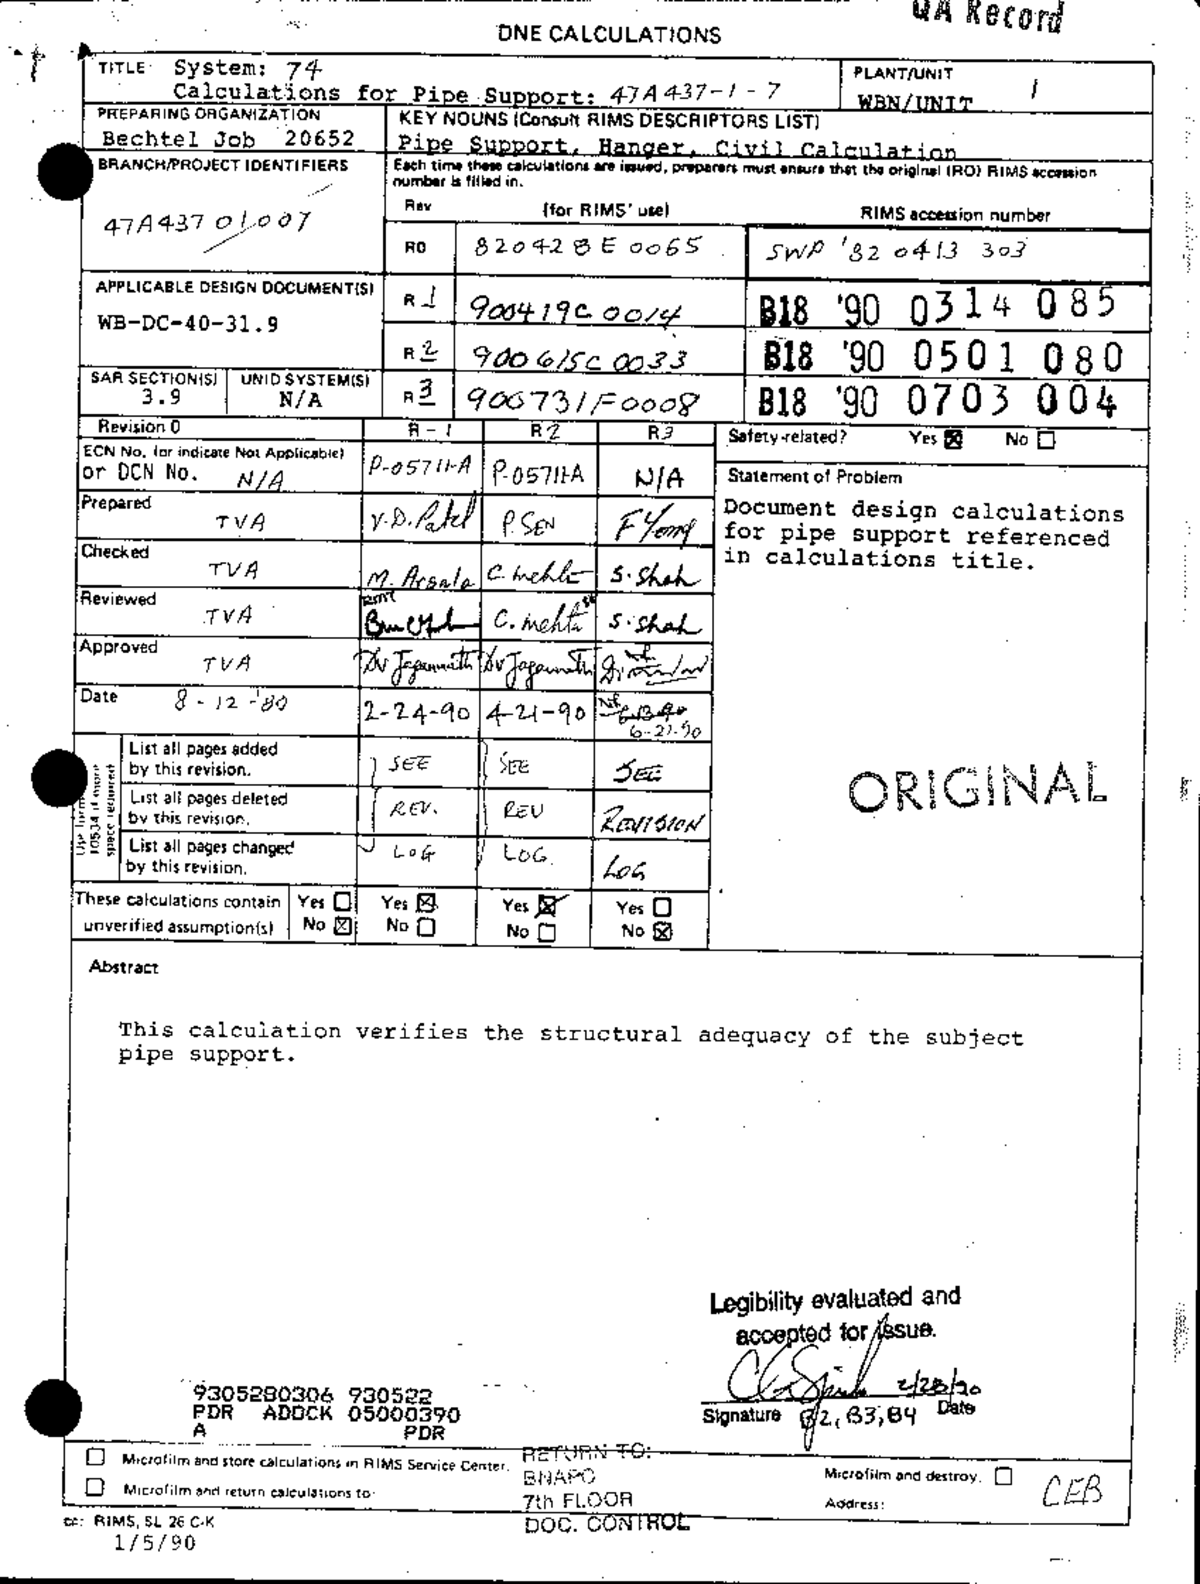 QA Record
DNE CALCULATIONS
TITLE: System: 74
Calculations for Pipe Support: 47A437-1-7
PLANT/UNIT
WBN/UNIT 1
PREPARING ORGANIZATION
Bechtel Job 20652
KEY NOUNS (Consult RIMS DESCRIPTORS LIST)
Pipe Support, Hanger, Civil Calculation
BRANCH/PROJECT IDENTIFIERS
47A437 01007
Each time these calculations are issued, preparers must ensure that the original (RO) RIMS accession
number is filled in.
Rev (for RIMS' use) RIMS accession number
R0 820428E0065 SWP '82 0413 303
APPLICABLE DESIGN DOCUMENT(S)
WB-DC-40-31.9
R 1 900419C0014 B18 '90 0314 085
R 2 900615C0033 B18 '90 0501 080
SAR SECTION(S) 3.9
UNID SYSTEM(S) N/A
R 3 900731F0008 B18 '90 0703 004
Revision 0 R-1 R2 R3
Safety-related? Yes ☒ No ☐
ECN No. (or indicate Not Applicable)
or DCN No. N/A P-05711-A P-05711-A N/A
Statement of Problem
Document design calculations
for pipe support referenced
in calculations title.
Prepared TVA V.D. Patel P. SEN F Yong
Checked TVA M. Arsala C. Mehta S. Shah
Reviewed TVA C. Mehta S. Shah
Approved TVA DV Jagannath DV Jagannath
Date 8-12-'80 2-24-90 4-21-90 6-27-90
List all pages added
by this revision. SEE SEE SEE
List all pages deleted
by this revision. REV. REV REVISION
List all pages changed
by this revision. LOG LOG. LOG
Use form
10534 if more
space required
ORIGINAL
These calculations contain Yes ☐ Yes ☒ Yes ☒ Yes ☐
unverified assumption(s) No ☒ No ☐ No ☐ No ☒
Abstract
This calculation verifies the structural adequacy of the subject
pipe support.
Legibility evaluated and
accepted for issue.
2/28/90
Signature B2, B3, B4 Date
9305280306 930522
PDR ADOCK 05000390
A PDR
☐ Microfilm and store calculations in RIMS Service Center.
☐ Microfilm and return calculations to:
RETURN TO:
BNAPC
7th FLOOR
DOC. CONTROL
Microfilm and destroy. ☐
Address:
CEB
cc: RIMS, SL 26 C-K
1/5/90